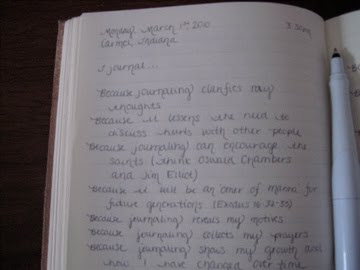 Monday, March 1st 2010
Carmel, Indiana
I journal...
Because journaling clarifies my
thoughts
Because it lessens the need to
discuss hurts with other people
Because journaling can encourage the
saints (think Oswald Chambers
and Jim Elliot)
Because it will be an omer of manna for
future generations (Exodus 16:32-33)
Because journaling reveals my motives
Because journaling collects my prayers
Because journaling shows my growth and
how I have changed over time